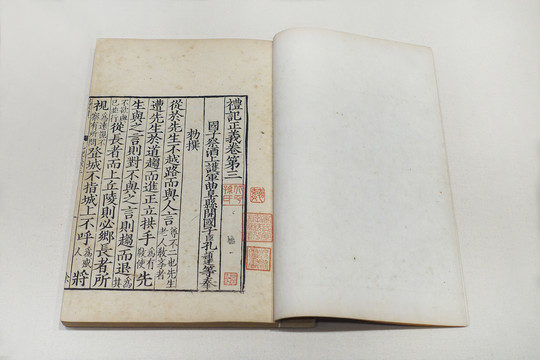 禮記正義卷第三
國子祭酒上護軍曲阜縣開國子臣孔穎達等奉
勑撰
從於先生不越路而與人言尊不二也先生老人教學者
遭先生於道趨而進正立拱手為有教使先
生與之言則對不與之言則趨而退為其
不欲與己並行從長者而上丘陵則必鄉長者所
視為遠視不察有所問登城不指城上不呼為惑人將